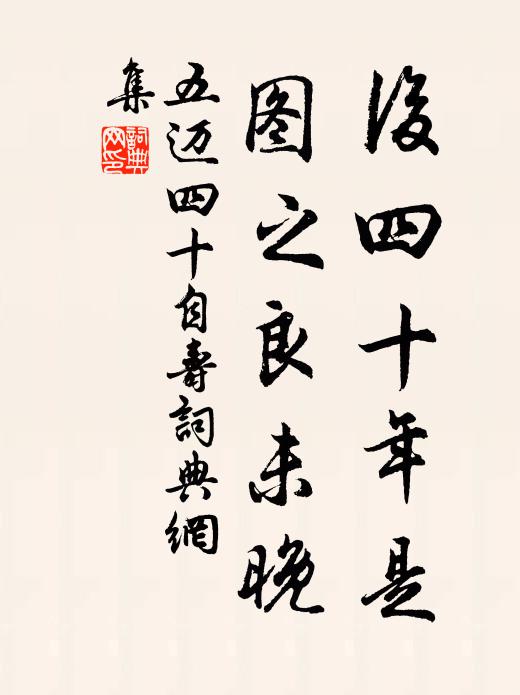 後四十年是
图之良未晚
五迈四十自壽詞典網
集
詞典
网印